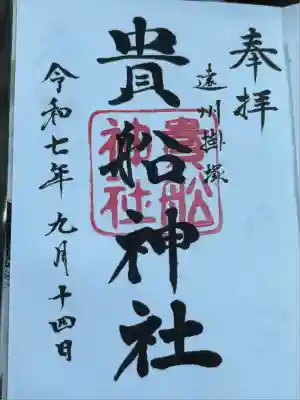 奉拝
遠州掛塚
貴船神社
貴船神社
令和七年九月十四日